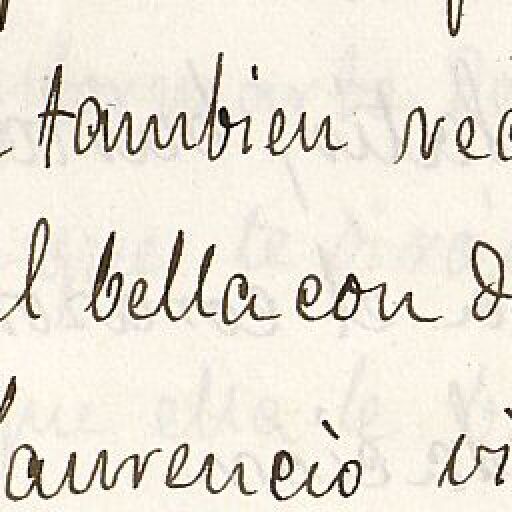 tambien rec
l bella con D
Laurencio vi